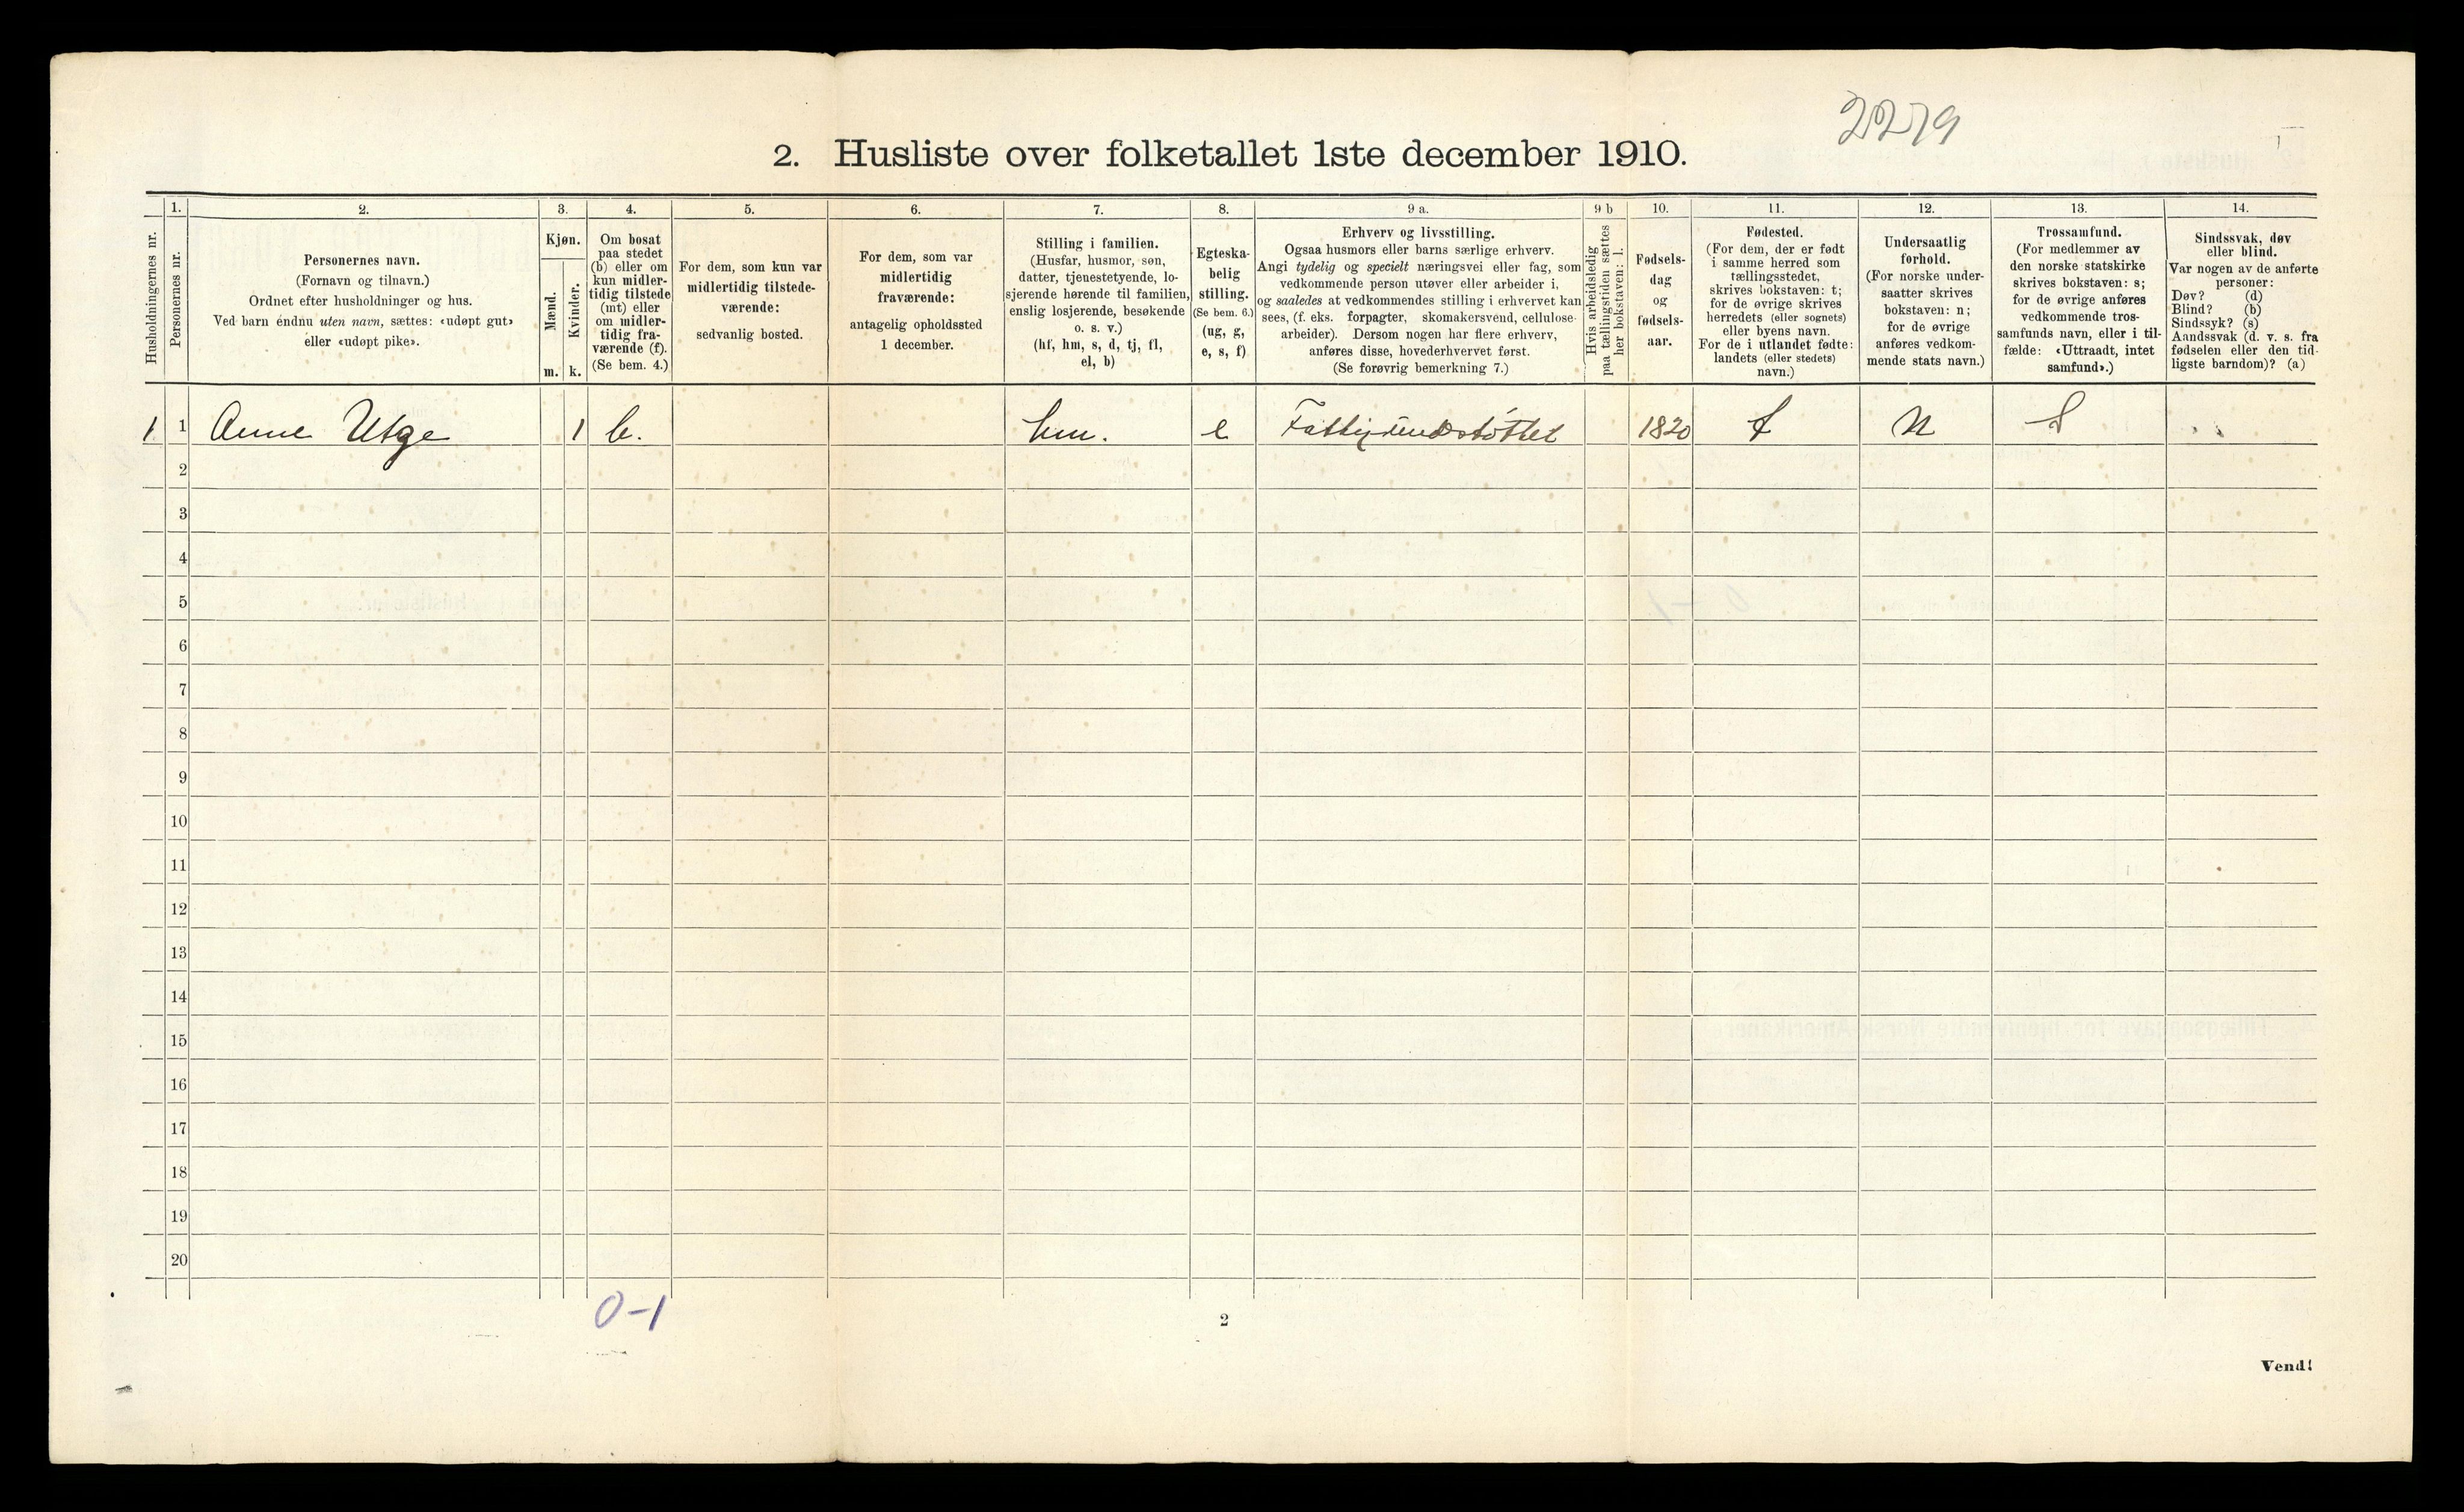 2279
2. Husliste over folketallet 1ste december 1910.
Husholdningernes nr.
1.
Personernes nr.
2.
Personernes navn.
(Fornavn og tilnavn.)
Ordnet efter husholdninger og hus.
Ved barn endnu uten navn, sættes: «udøpt gut»
eller «udøpt pike».
3.
Kjøn.
Mænd.
m.
Kvinder.
k.
4.
Om bosat
paa stedet
(b) eller om
kun midler-
tidig tilstede
(mt) eller
om midler-
tidig fra-
værende (f).
(Se bem. 4.)
5.
For dem, som kun var
midlertidig tilstede-
værende:
sedvanlig bosted.
6.
For dem, som var
midlertidig
fraværende:
antagelig opholdssted
1 december.
7.
Stilling i familien.
(Husfar, husmor, søn,
datter, tjenestetyende, lo-
sjerende hørende til familien,
enslig losjerende, besøkende
o. s. v.)
(hf, hm, s, d, tj, fl,
el, b)
8.
Egteska-
belig
stilling.
(Se bem. 6.)
(ug, g,
e, s, f)
9 a.
Erhverv og livsstilling.
Ogsaa husmors eller barns særlige erhverv.
Angi tydelig og specielt næringsvei eller fag, som
vedkommende person utøver eller arbeider i,
og saaledes at vedkommendes stilling i erhvervet kan
sees, (f. eks. forpagter, skomakersvend, cellulose-
arbeider). Dersom nogen har flere erhverv,
anføres disse, hovederhvervet først.
(Se forøvrig bemerkning 7.)
9 b
Hvis arbeidsledig
paa tællingstiden sættes
her bokstaven: l.
10.
Fødsels-
dag
og
fødsels-
aar.
11.
Fødested.
(For dem, der er født
i samme herred som
tællingsstedet,
skrives bokstaven: t;
for de øvrige skrives
herredets (eller sognets)
eller byens navn.
For de i utlandet fødte:
landets (eller stedets)
navn.)
12.
Undersaatlig
forhold.
(For norske under-
saatter skrives
bokstaven: n;
for de øvrige
anføres vedkom-
mende stats navn.)
13.
Trossamfund.
(For medlemmer av
den norske statskirke
skrives bokstaven: s;
for de øvrige anføres
vedkommende tros-
samfunds navn, eller i til-
fælde: «Uttraadt, intet
samfund».)
14.
Sindssvak, døv
eller blind.
Var nogen av de anførte
personer:
Døv? (d)
Blind? (b)
Sindssyk? (s)
Aandssvak (d. v. s. fra
fødselen eller den tid-
ligste barndom)? (a)
1 1 Anne Utge 1 b. hm. e Fattigundstøttet 1820 t N S
2
3
4
5
6
7
8
9
10
11
12
13
14
15
16
17
18
19
20
0-1
2
Vend!